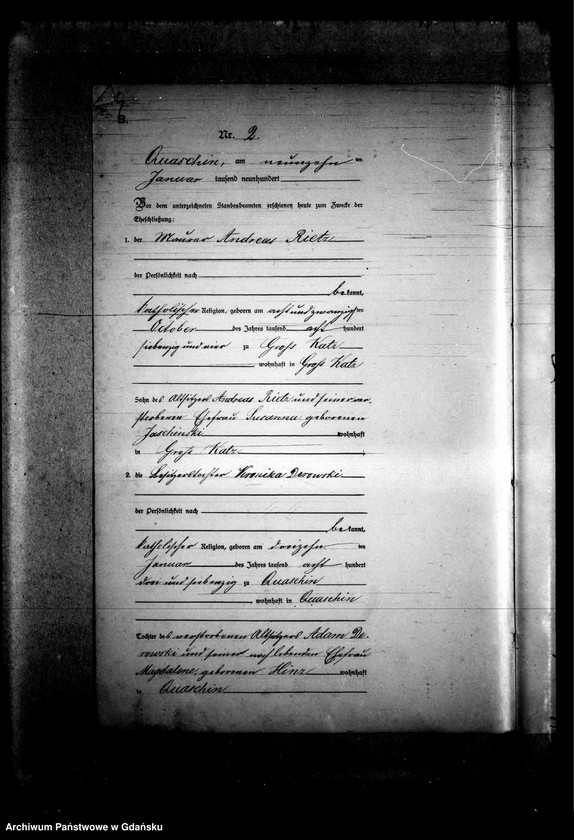 B.
Nr. 2.
Quaschin, am neunzehnten
Januar tausend neunhundert
Vor dem unterzeichneten Standesbeamten erschienen heute zum Zwecke der
Eheschließung:
1. der Maurer Andreas Rietz
der Persönlichkeit nach
be kannt,
katholischer Religion, geboren am acht und zwanzigsten
October des Jahres tausend acht hundert
siebenzig und vier zu Groß Katz
wohnhaft in Groß Katz
Sohn des Altsitzers Andreas Rietz und seiner ver-
storbenen Ehefrau Susanna geborenen
Jaschinski wohnhaft
in Groß Katz
2. die Besitzerstochter Veronika Derowski
der Persönlichkeit nach
be kannt,
katholischer Religion, geboren am dreizehnten
Januar des Jahres tausend acht hundert
drei und siebenzig zu Quaschin
wohnhaft in Quaschin
Tochter des verstorbenen Altsitzers Adam De-
rowski und seiner noch lebenden Ehefrau
Magdalene, geborenen Hinz wohnhaft
in Quaschin
Archiwum Państwowe w Gdańsku